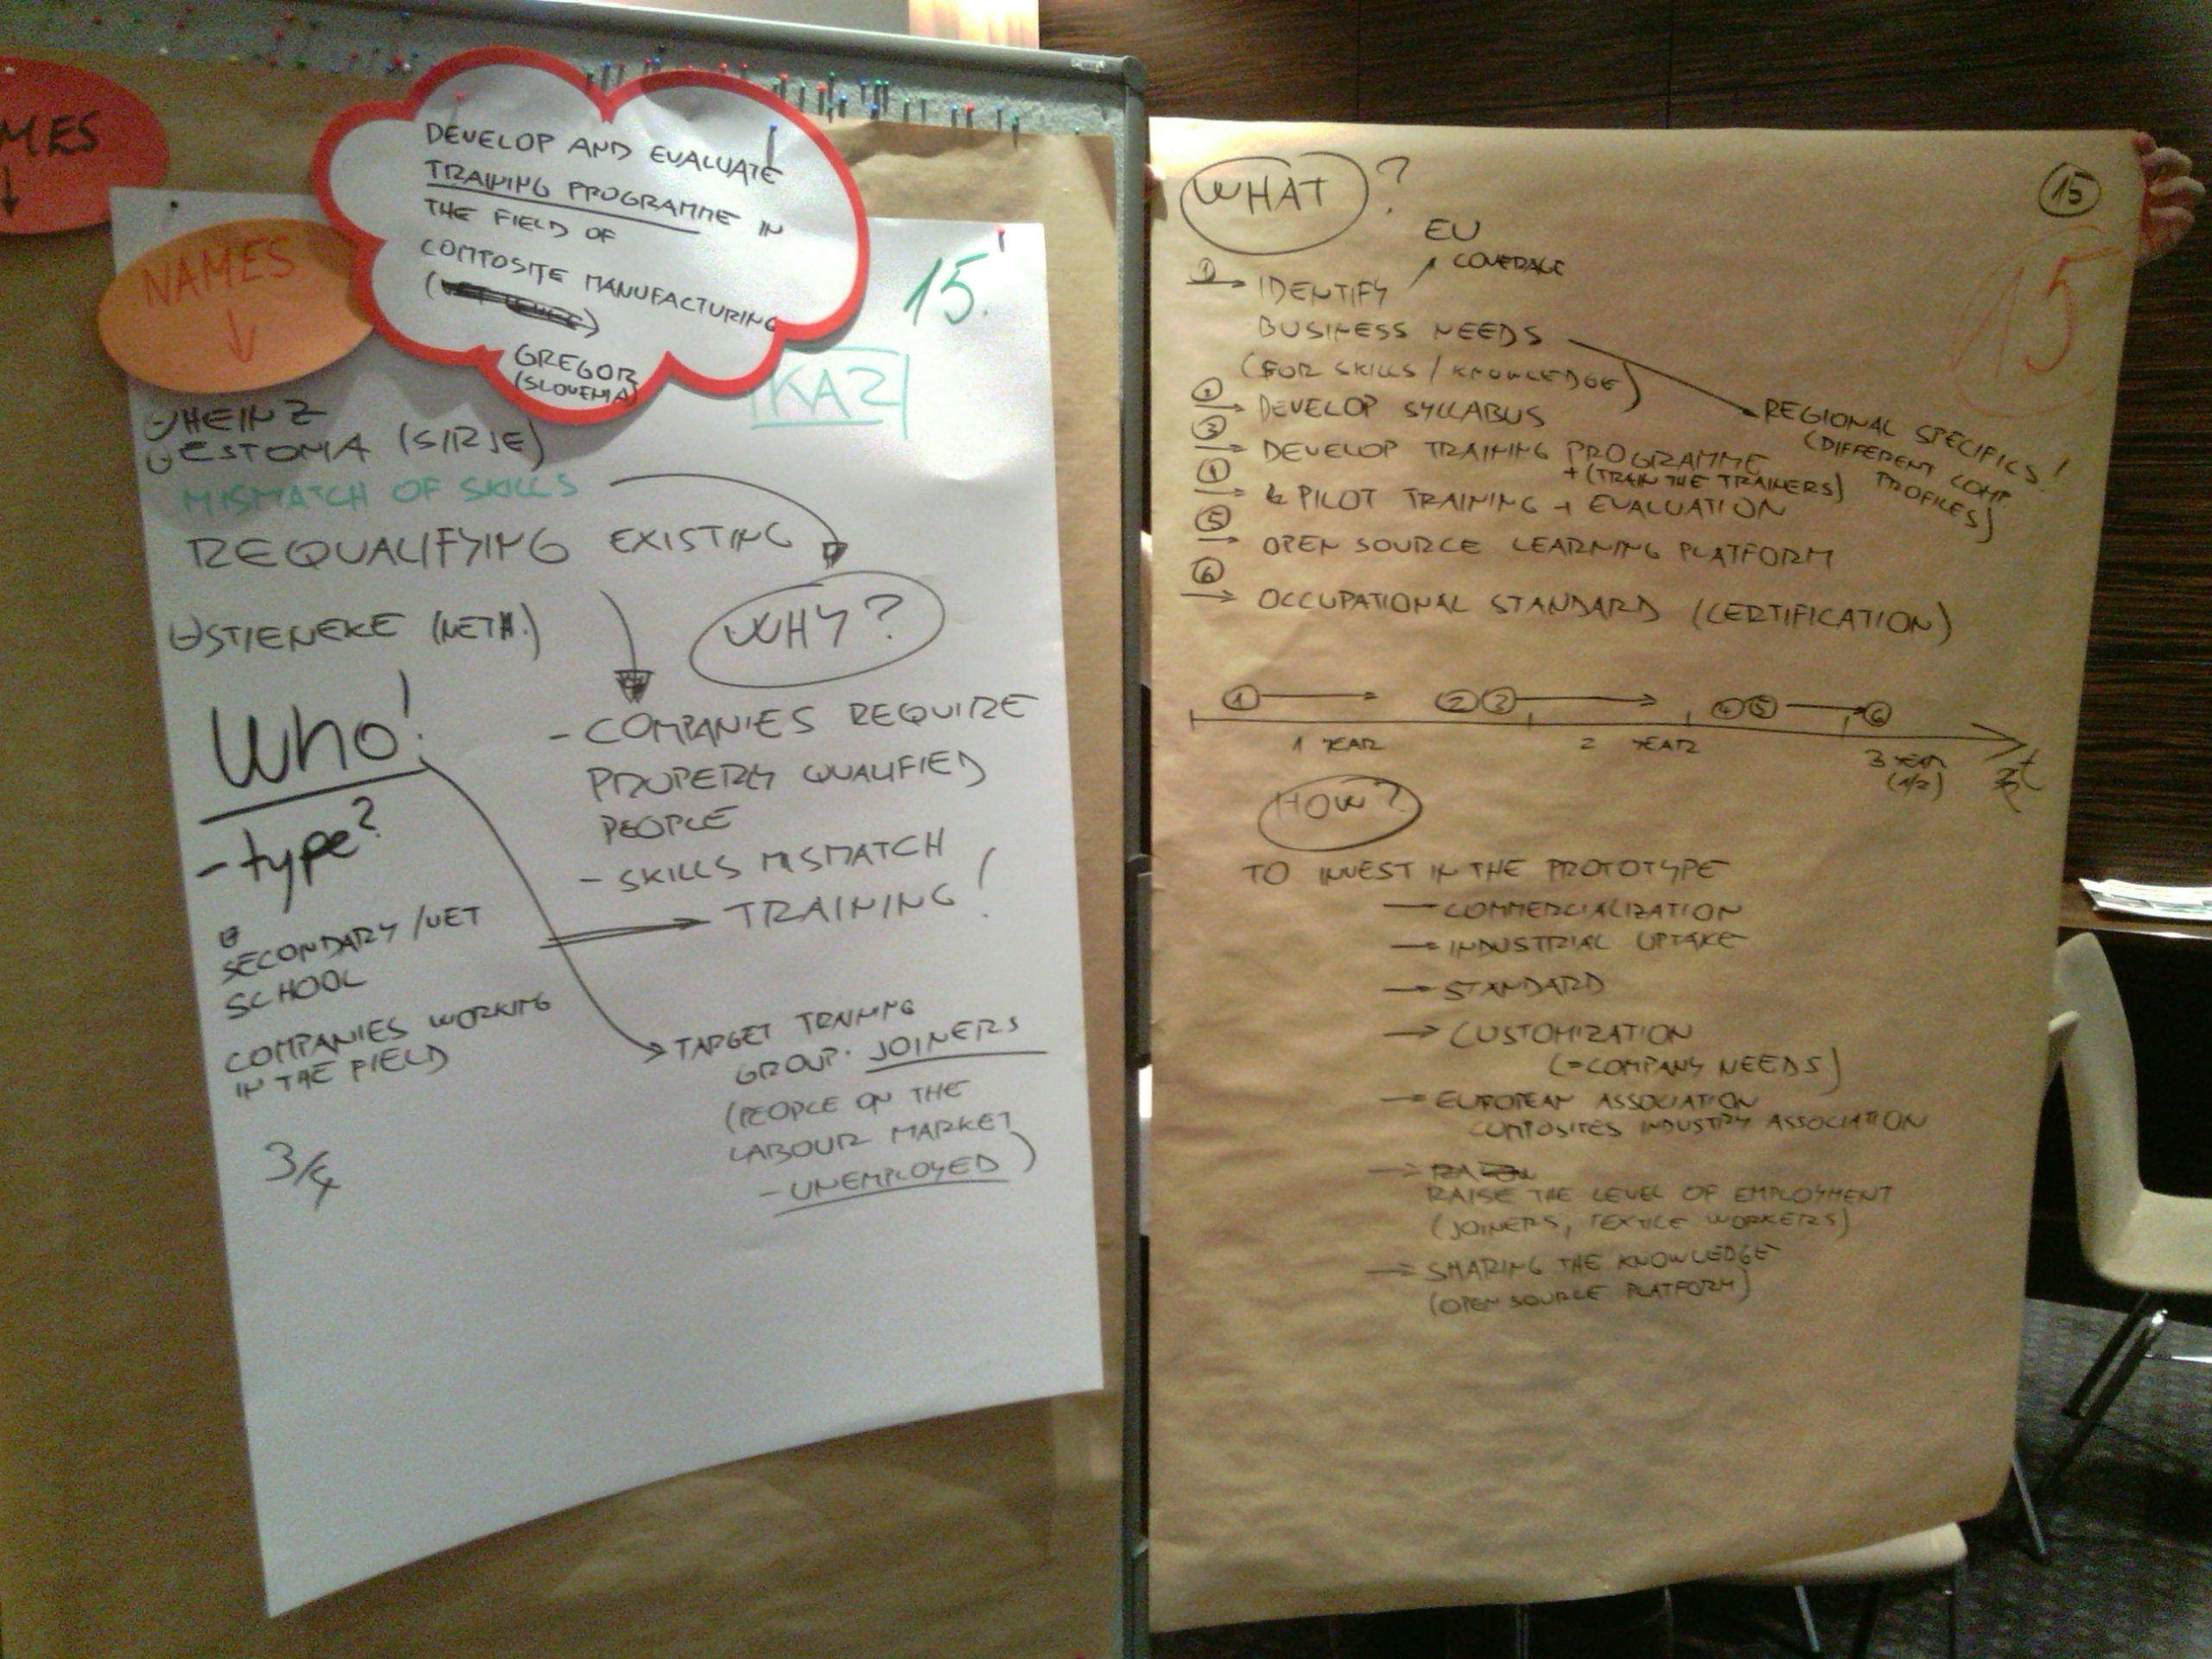 MES
NAMES
DEVELOP AND EVALUATE
TRAINING PROGRAMME IN
THE FIELD OF
COMPOSITE MANUFACTURING
GREGOR
(SLOVENIA)
15!
KA2
HEINZ
ESTONIA (SIRJE)
MISMATCH OF SKILLS
REQUALIFYING EXISTING
STIENEKE (NETH.)
WHY?
Who!
- type?
SECONDARY/VET
SCHOOL
COMPANIES WORKING
IN THE FIELD
3/4
- COMPANIES REQUIRE
PROPERLY QUALIFIED
PEOPLE
- SKILLS MISMATCH
TRAINING!
TARGET TRAINING
GROUP: JOINERS
(PEOPLE ON THE
LABOUR MARKET
- UNEMPLOYED)
WHAT?
15
15
EU
COVERAGE
1 IDENTIFY
BUSINESS NEEDS
(FOR SKILLS/KNOWLEDGE)
REGIONAL SPECIFICS!
(DIFFERENT COMP.
PROFILES)
2 DEVELOP SYLLABUS
3 DEVELOP TRAINING PROGRAMME
+ (TRAIN THE TRAINERS)
4 & PILOT TRAINING + EVALUATION
5 OPEN SOURCE LEARNING PLATFORM
6 OCCUPATIONAL STANDARD (CERTIFICATION)
1 2 3 4 5 6
1 YEAR 2 YEAR 3 YEAR
(1/2)
t
HOW?
TO INVEST IN THE PROTOTYPE
COMMERCIALIZATION
INDUSTRIAL UPTAKE
STANDARD
CUSTOMIZATION
(=COMPANY NEEDS)
EUROPEAN ASSOCIATION
COMPOSITES INDUSTRY ASSOCIATION
RAISE THE LEVEL OF EMPLOYMENT
(JOINERS, TEXTILE WORKERS)
SHARING THE KNOWLEDGE
(OPEN SOURCE PLATFORM)